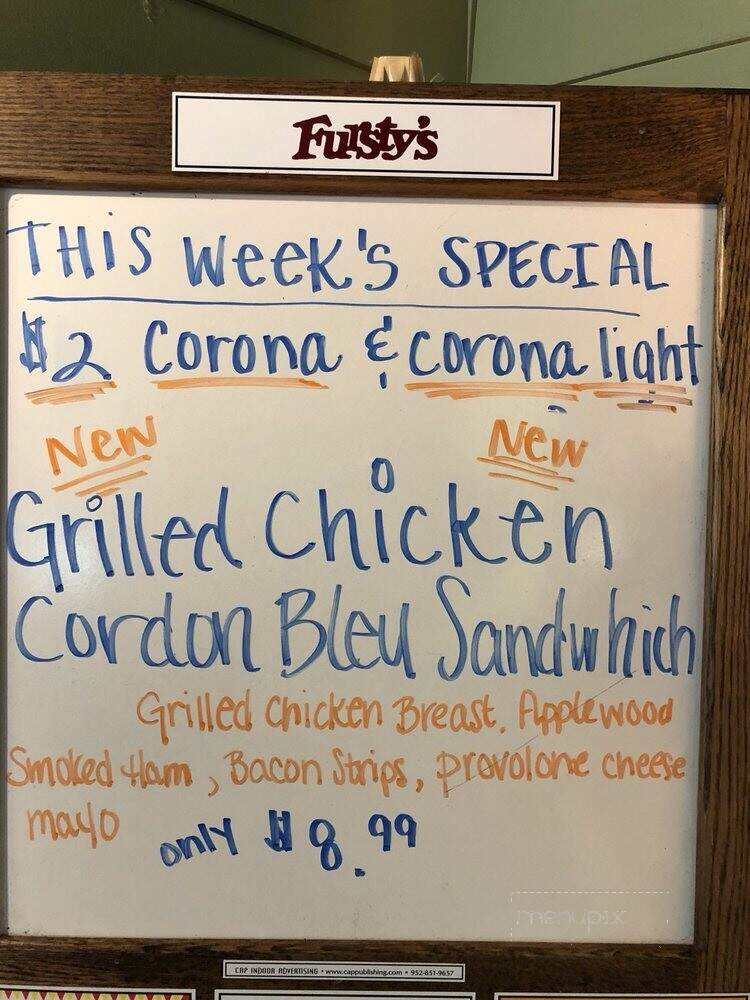 Fursty's
THiS WeeK's SPECIAL
$2 Corona & corona light
New New
Grilled Chicken
Cordon Bleu Sandwhich
Grilled Chicken Breast, Applewood
Smoked Ham, Bacon Strips, provolone cheese
mayo only $8.99
menupix
CAP INDOOR ADVERTISING • www.cappublishing.com • 952-851-9657